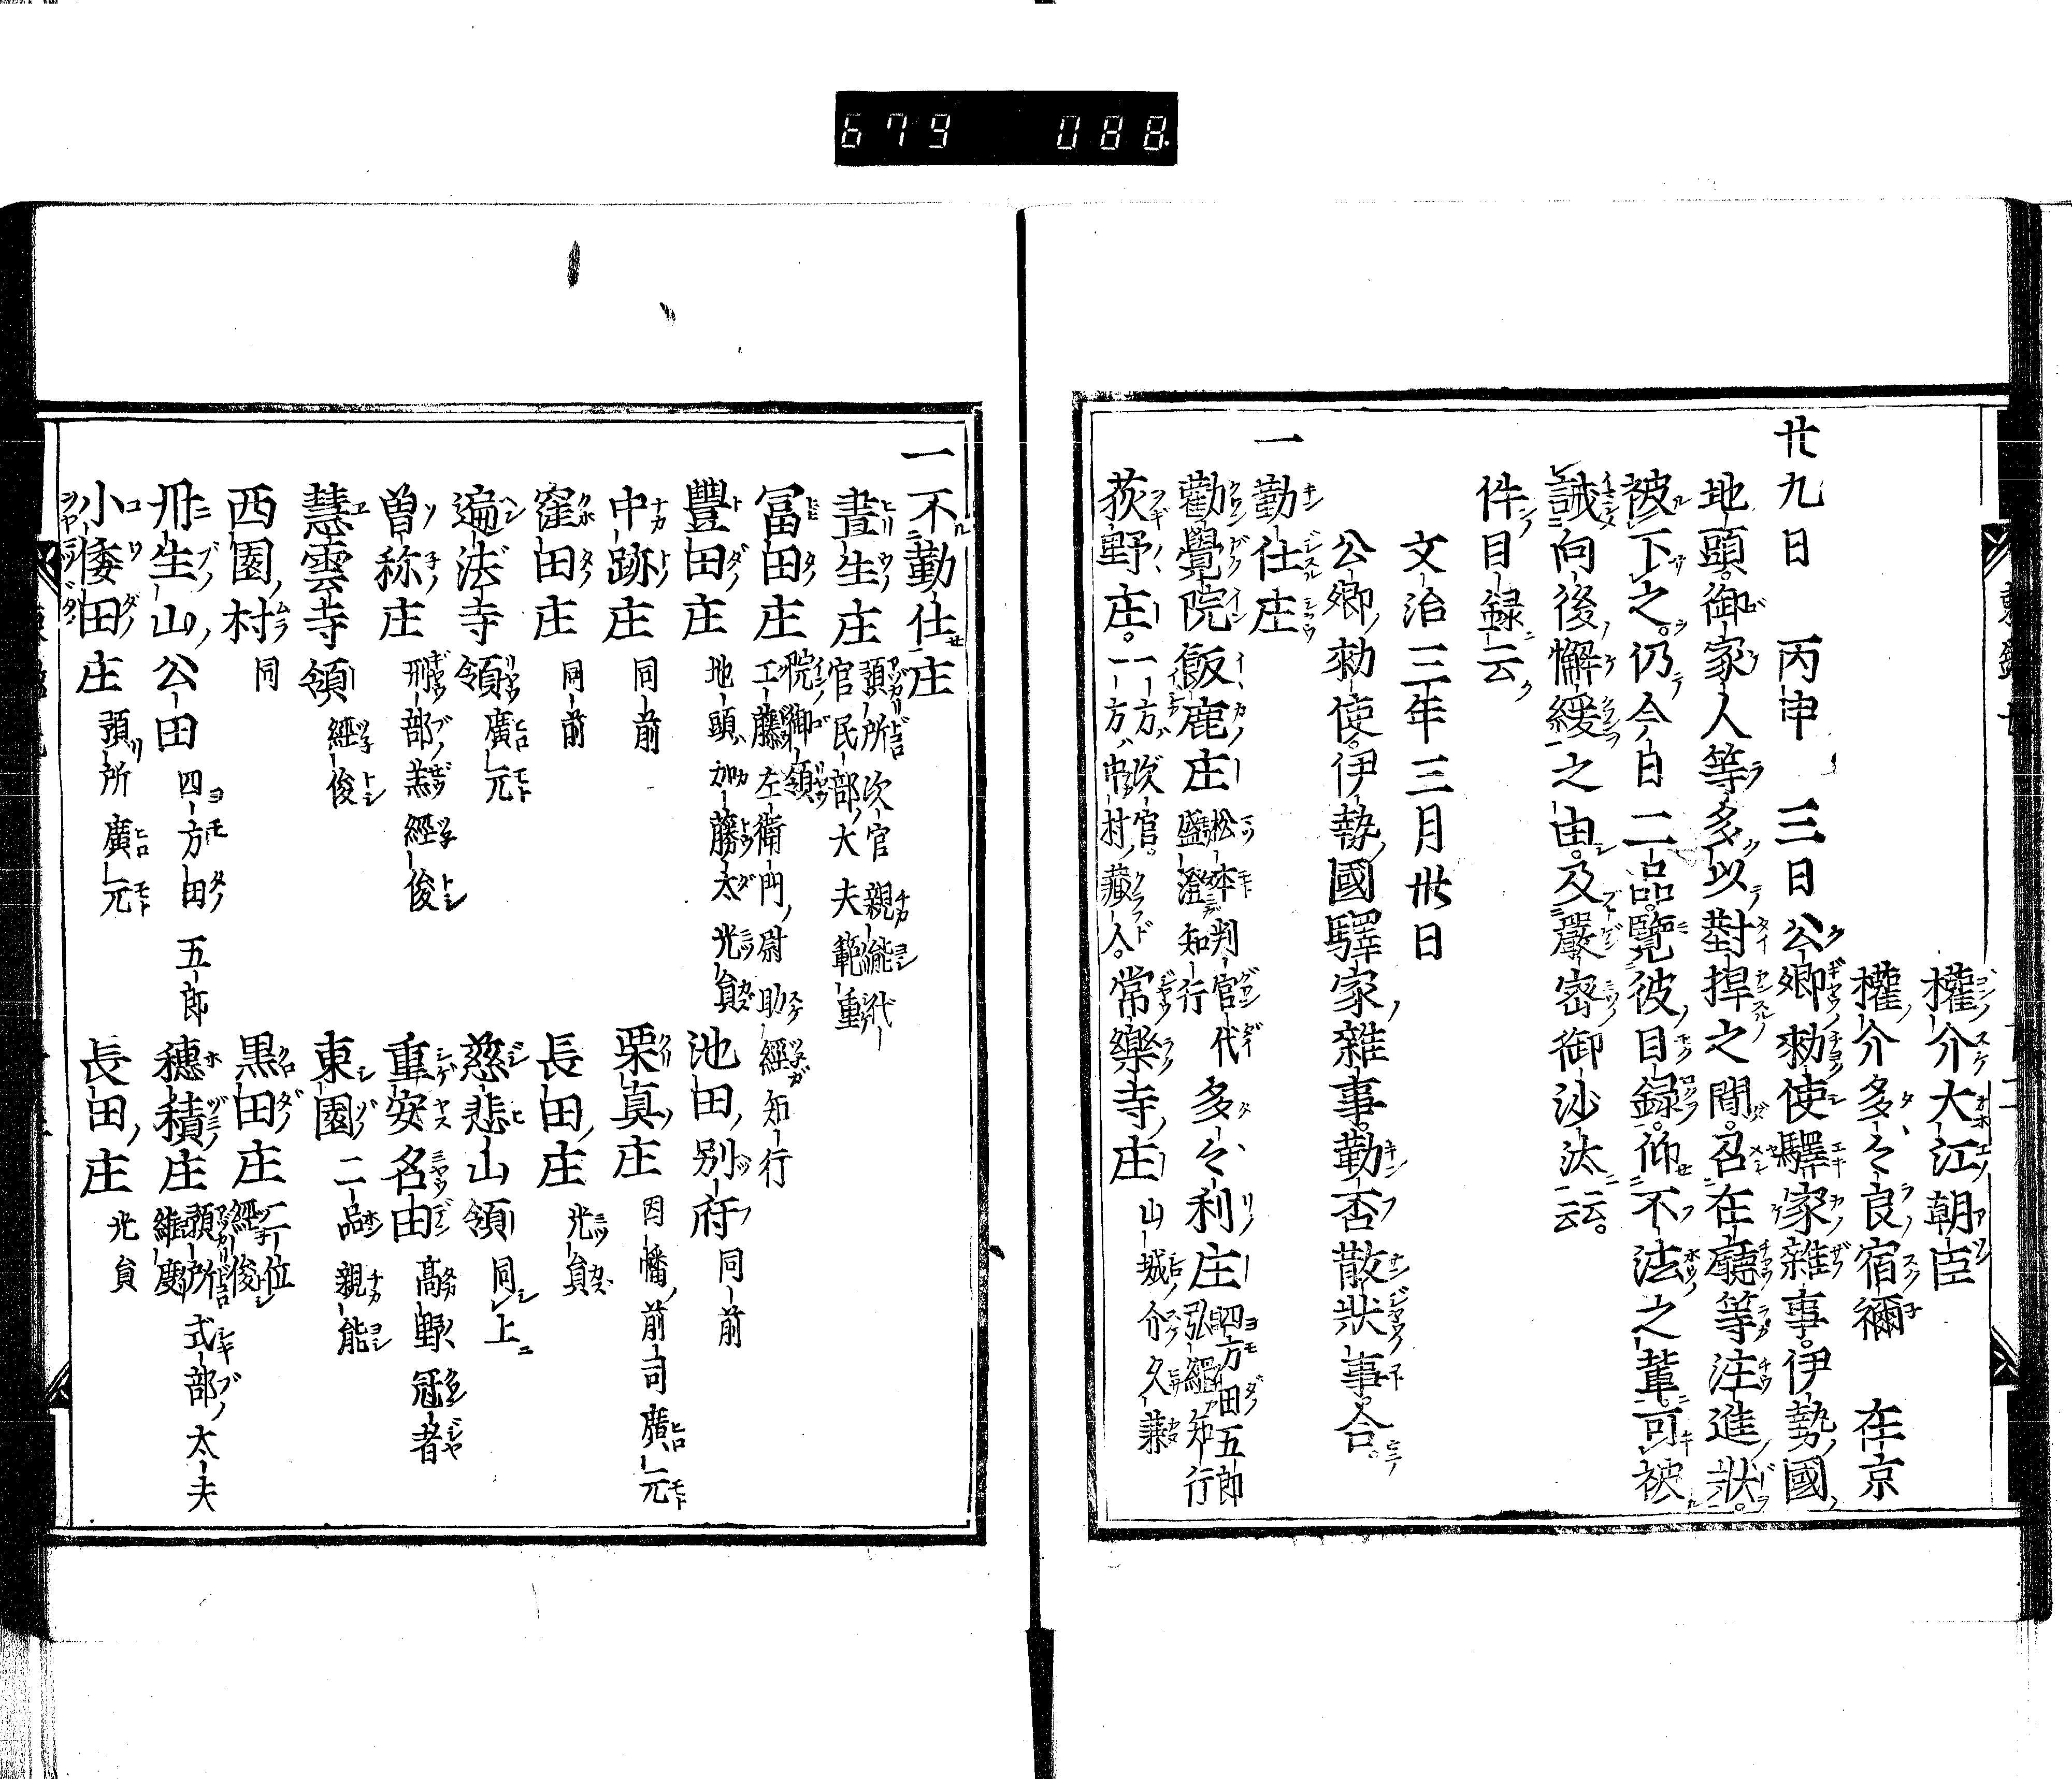 679 088
權介大江朝臣
權介多々良宿禰 在京
廿九日 丙申 三日公卿勅使驛家雜事。伊勢國
地頭。御家人等多以對捍之間。召在廳等注進狀。
被下之。仍今日二品。覽彼目録。仰不法之輩可被
誡向後懈緩之由。及嚴密御沙汰云云。
件目録云
文治三年三月卅日
公卿勅使。伊勢國驛家雜事。勤否散狀事。合。
一 勤仕庄
勸覺院飯鹿庄 松本判官代盛澄知行 多々利庄 四方田五郎弘綱知行
荻野庄。一方次官。一方中村藏人。 常樂寺庄 山城介久兼
一 不勤仕庄
晝生庄 預所次官親能代官民部大夫範重
冨田庄 院御領工藤左衛門尉助經知行
豐田庄 地頭加藤太光員 池田別府 同前
中跡庄 同前 栗真庄 因幡前司廣元
窪田庄 同前 長田庄 光員
遍法寺領 廣元 慈悲山領 同上
曽祢庄 刑部丞經俊 重安名田 髙野冠者
慧雲寺領 經俊 東園 二品親能
西園村 同 黒田庄 一位經俊
丹生山公田 四方田五郎 穗積庄 預所式部太夫維度
小倭田庄 預所廣元 長田庄 光員